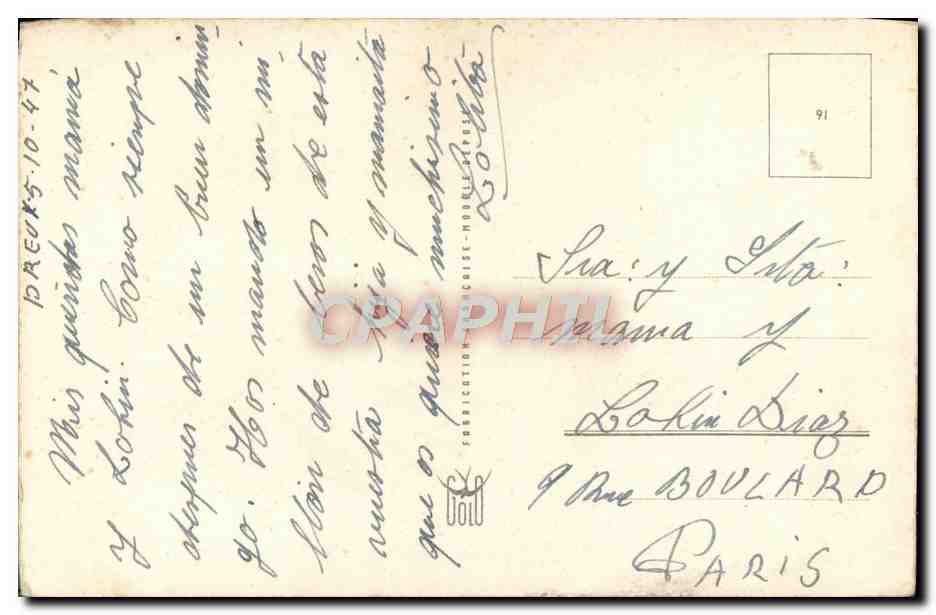 DREUX 5-10-47
Mis queridas mamá
y Lolin. Como siempre
despues de un buen domin
go. Hos mando un mi
llon de besos de esta
vuestra hija y mamaita
que os quiere muchisimo
Lolita
FABRICATION FRANÇAISE - MODÈLE DÉPOSÉ
CPAPHIL
91
Sra: y Srta:
mama y
Lolin Diaz
9 Rue BOULARD
PARIS